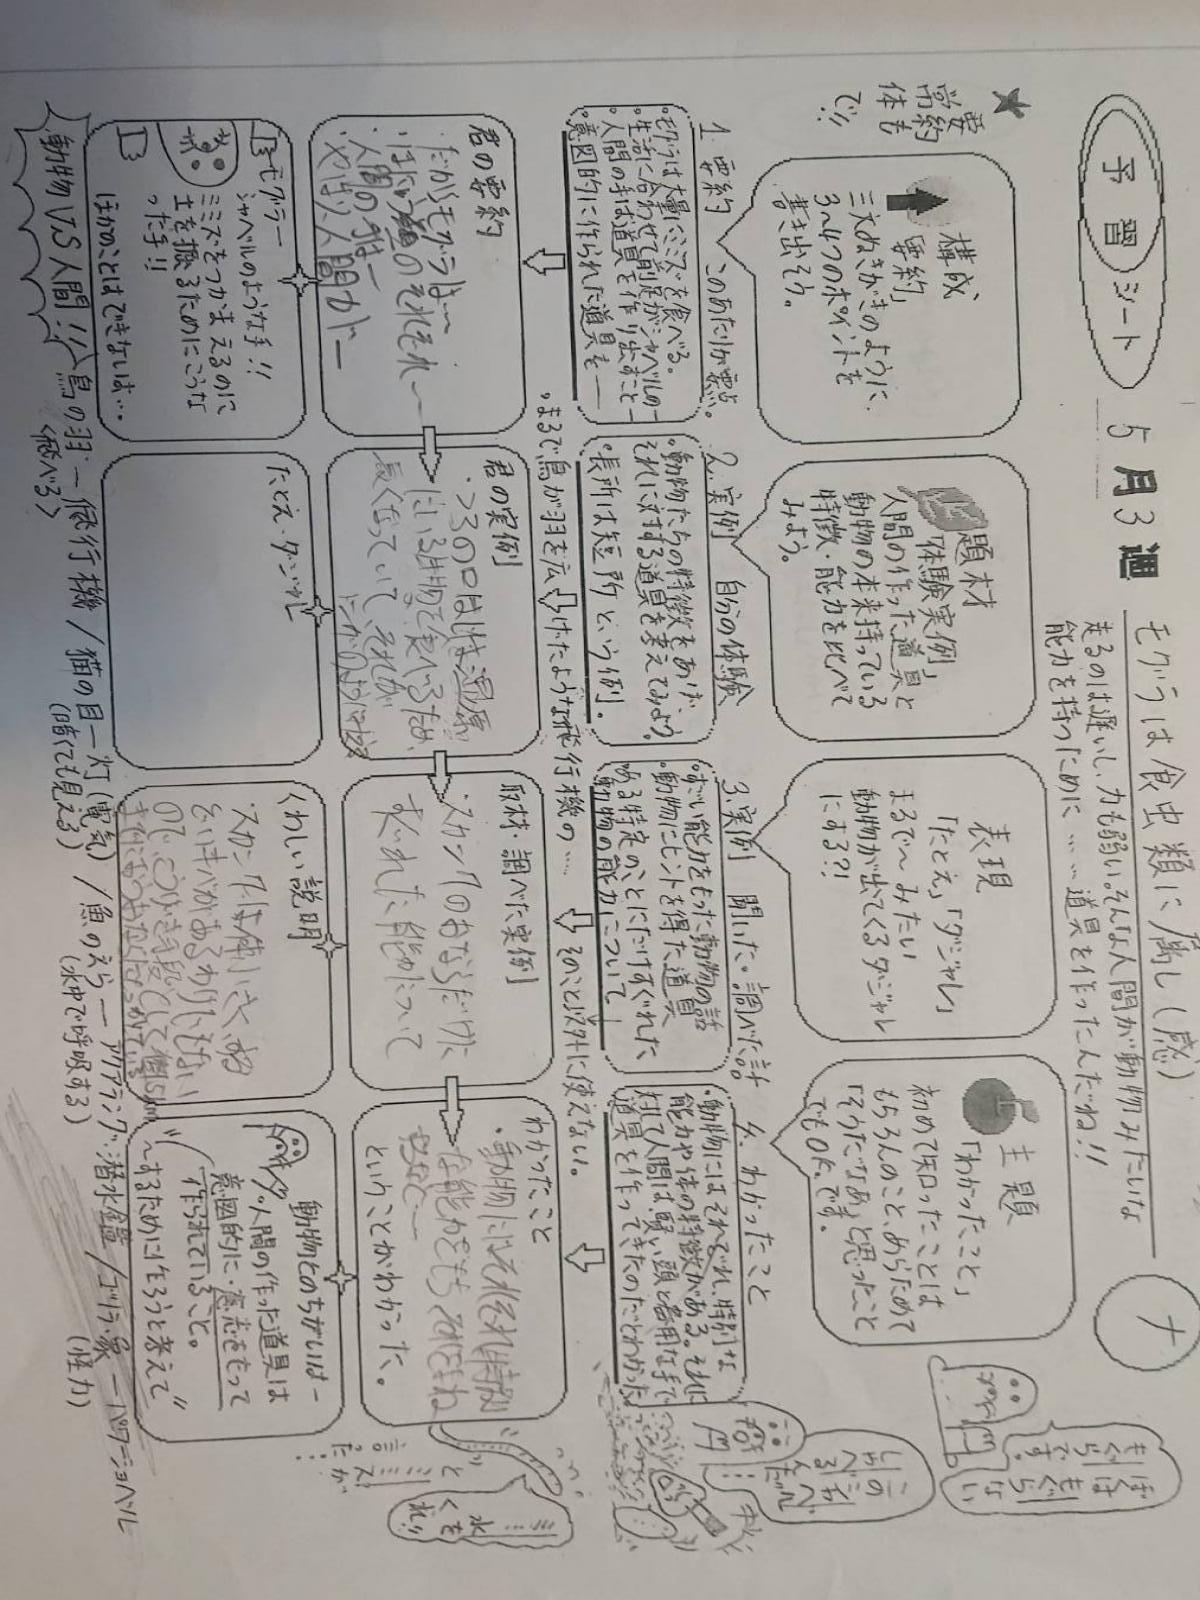 予習シート
5月3週
モグラは食虫類に属し(感)
走るのは遅いし、力も弱い。そんな人間が動物みたいな
能力を持つために……道具を作ったんだね!!
ナ
★要約
常体も
で!!
構成
「要約」
三文ぬきがきのように、
3~4つのポイントを
書き出そう。
題材
「体験実例」
人間の作った道具と
動物の本来持っている
特徴・能力を比べて
みよう。
表現
「たとえ」「ダジャレ」
まるで~みたい
動物が出てくるダジャレ
にする?!
主題
「わかったこと」
初めて知ったことは
もちろんのこと、あらためて
「そうだなあ」と思ったこと
でもOKです。
ぼくは
もぐら
です。
もぐらない
1. 要約 このあたりが要点。
・モグラは大量にミミズを食べる。
・生活に合わせて前足がシャベルの—
・人間の手は道具を作り出すこと—
・意図的に作られた道具を——
2. 実例 自分の体験
・動物たちの特徴をあげ、
それに対する道具を考えてみよう。
・長所は短所という例。
3. 実例 聞いた・調べた話
・すごい能力をもった動物の話
・動物にヒントを得た道具
・ある特定のことにだけすぐれた
動物の能力について
4. わかったこと
・動物にはそれぞれ、特別な
能力や体の特徴がある。それに
対して人間は、賢い頭と器用な手で
道具を作ってきたのだとわかった。
・まるで鳥が羽を広げたような飛行機の…
そのこと以外に使えない。
君の要約
・だがモグラは~
・人間の手は—
・やはり人間が—
君の実例
長くなっていて、それが
取材・調べた実例
・スカンクのおならだけに
すぐれた能力について
わかったこと
・動物にはそれぞれ特別
な能力をもち
ということがわかった。
モグラ—
シャベルのような手!!
ミミズをつかまえるのに
土を掘るためにこうな
った手!!
ほかのことはできないは…
たとえ・ダジャレ
くわしい説明
・スカンクは体が小さい
動物とのちがいは—
人間の作った道具は
意図的に・意志をもって
作られていること。
“~するために作ろうと考えて”
と
ミミズが
言った…!
動物VS人間!!
鳥の羽—飛行機/猫の目—灯(電気)/魚のえら—アクアラング・潜水艦/ゴリラ・象—パワーショベル
<飛べる>
(暗くても見える)
(水中で呼吸する)
(怪力)